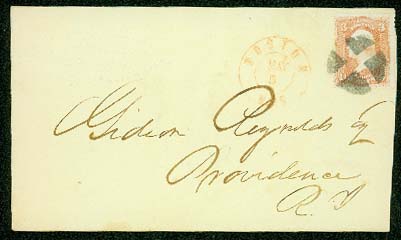 BOSTON
Gideon Reynolds Esq
Providence
R.I